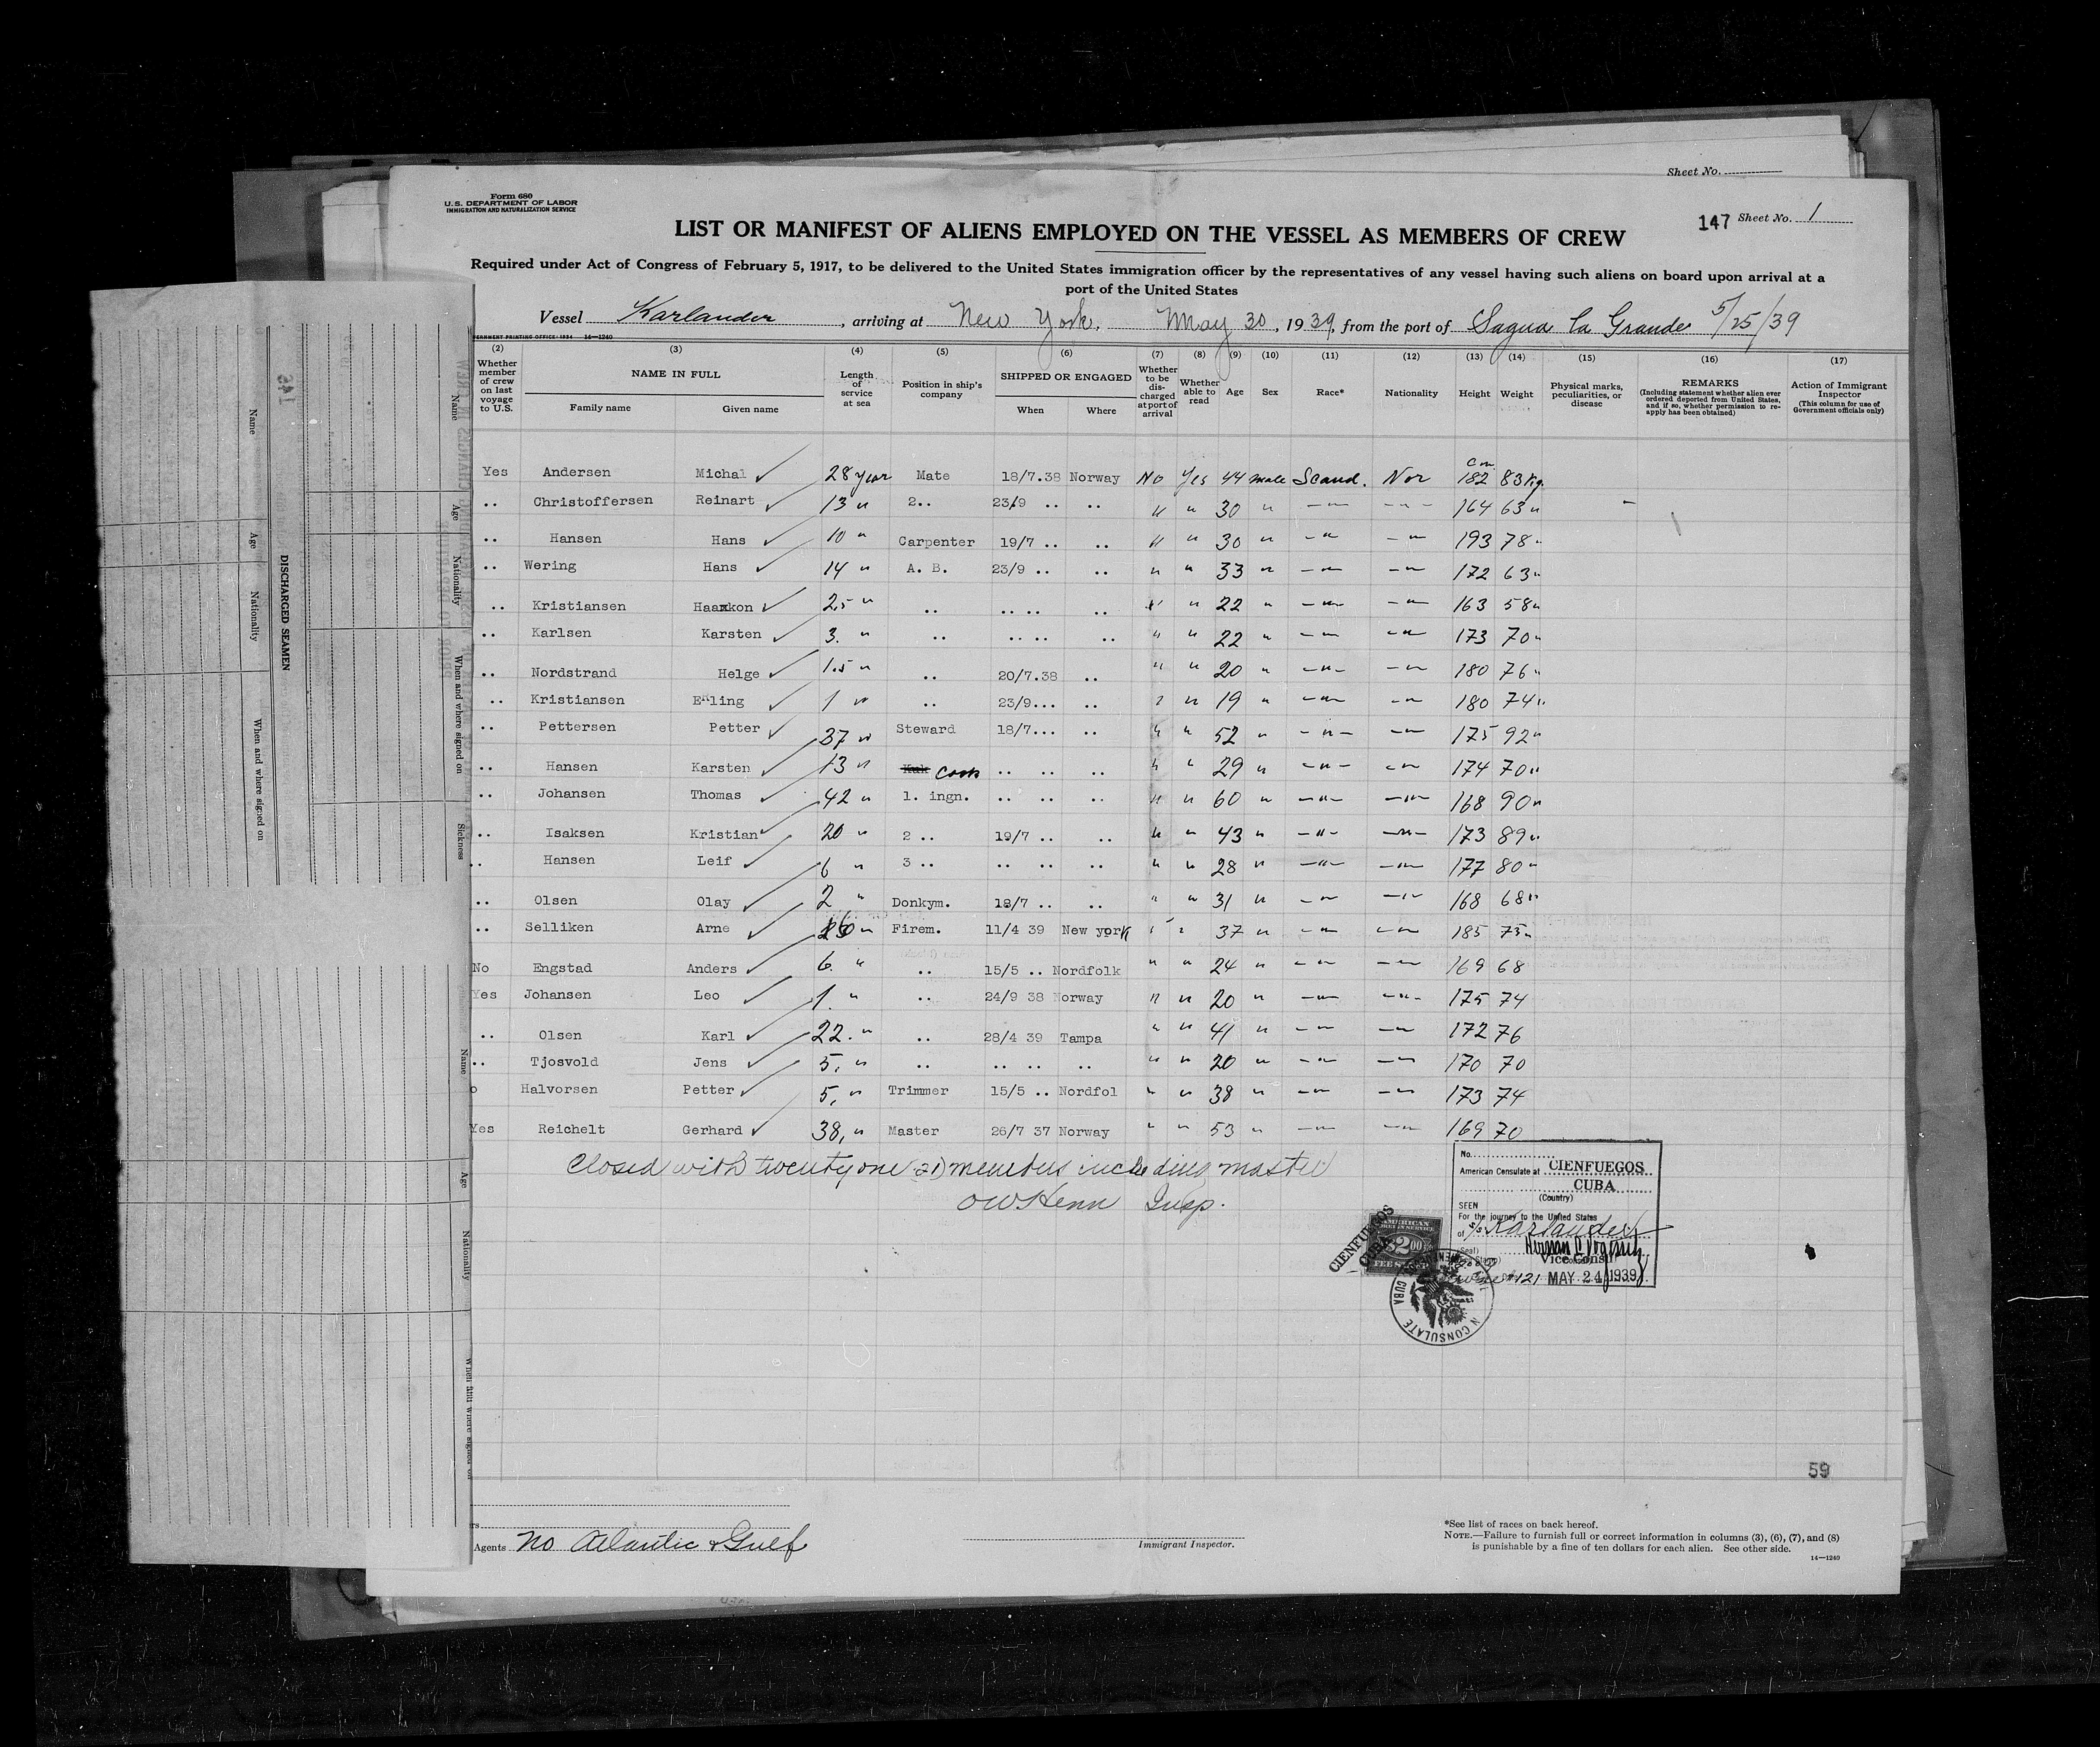 Sheet No.
Form 680
U.S. DEPARTMENT OF LABOR
IMMIGRATION AND NATURALIZATION SERVICE
147 Sheet No. 1
LIST OR MANIFEST OF ALIENS EMPLOYED ON THE VESSEL AS MEMBERS OF CREW
Required under Act of Congress of February 5, 1917, to be delivered to the United States immigration officer by the representatives of any vessel having such aliens on board upon arrival at a
port of the United States
Vessel Karlander, arriving at New York, May 30, 1939, from the port of Sagua la Grande 5/25/39
14—1240
(2) (3) (4) (5) (6) (7) (8) (9) (10) (11) (12) (13) (14) (15) (16) (17)
Whether member of crew on last voyage to U.S.
NAME IN FULL
Family name Given name
Length of service at sea
Position in ship's company
SHIPPED OR ENGAGED
When Where
Whether to be discharged at port of arrival
Whether able to read
Age Sex Race* Nationality Height Weight
Physical marks, peculiarities, or disease
REMARKS
(Including statement whether alien ever ordered deported from United States, and if so, whether permission to reapply has been obtained)
Action of Immigrant Inspector
(This column for use of Government officials only)
Yes Andersen Michal ✓ 28 year Mate 18/7.38 Norway No Yes 44 male Scand. Nor Cm 182 83 Kg.
.. Christoffersen Reinart ✓ 13 " 2.. 23/9 .. .. " " 30 " —"— —"— 164 63 "
.. Hansen Hans ✓ 10 " Carpenter 19/7 .. .. " " 30 " —"— —"— 193 78 "
.. Wering Hans ✓ 14 " A. B. 23/9 .. .. " " 33 " —"— —"— 172 63 "
.. Kristiansen Haakon ✓ 2,5 " .. .. .. .. " " 22 " —"— —"— 163 58 "
.. Karlsen Karsten ✓ 3. " .. .. .. .. " " 22 " —"— —"— 173 70 "
.. Nordstrand Helge ✓ 1.5 " .. 20/7.38 .. " " 20 " —"— —"— 180 76 "
.. Kristiansen Erling ✓ 1 " .. 23/9... .. " " 19 " —"— —"— 180 74 "
.. Pettersen Petter ✓ 37 " Steward 18/7... .. " " 52 " —"— —"— 175 92 "
.. Hansen Karsten ✓ 13 " Kok cook .. .. .. " " 29 " —"— —"— 174 70 "
.. Johansen Thomas ✓ 42 " 1. ingn. .. .. .. " " 60 " —"— —"— 168 90 "
.. Isaksen Kristian ✓ 20 " 2 .. 19/7 .. .. " " 43 " —"— —"— 173 89 "
.. Hansen Leif ✓ 6 " 3 .. .. .. .. " " 28 " —"— —"— 177 80 "
.. Olsen Olay ✓ 2 " Donkym. 18/7 .. .. " " 31 " —"— —"— 168 68 "
.. Selliken Arne ✓ " Firem. 11/4 39 New york " " 37 " —"— —"— 185 75 "
No Engstad Anders ✓ 6. " .. 15/5 .. Nordfolk " " 24 " —"— —"— 169 68
Yes Johansen Leo ✓ 1. " .. 24/9 38 Norway " " 20 " —"— —"— 175 74
.. Olsen Karl ✓ 22. " .. 28/4 39 Tampa " " 41 " —"— —"— 172 76
.. Tjosvold Jens ✓ 5, " .. .. .. .. " " 20 " —"— —"— 170 70
o Halvorsen Petter ✓ 5, " Trimmer 15/5 .. Nordfol " " 38 " —"— —"— 173 74
Yes Reichelt Gerhard ✓ 38, " Master 26/7 37 Norway " " 53 " —"— —"— 169 70
Closed with twenty one (21) members including master
OW Henn Insp.
No.
American Consulate at CIENFUEGOS
CUBA
(Country)
SEEN
For the journey to the United States
of S/S Karlander
Vice Consul
MAY 24 1939
CIENFUEGOS
CUBA
AMERICAN
$2.00
FEE STAMP
N CONSULATE
CUBA
59
Agents No Atlantic & Gulf
Immigrant Inspector.
*See list of races on back hereof.
NOTE.—Failure to furnish full or correct information in columns (3), (6), (7), and (8)
is punishable by a fine of ten dollars for each alien. See other side.
14—1240
DISCHARGED SEAMEN
Name Age Nationality When and where signed on
Name Age Nationality When and where signed on Sickness
Name Age Nationality When and where signed on